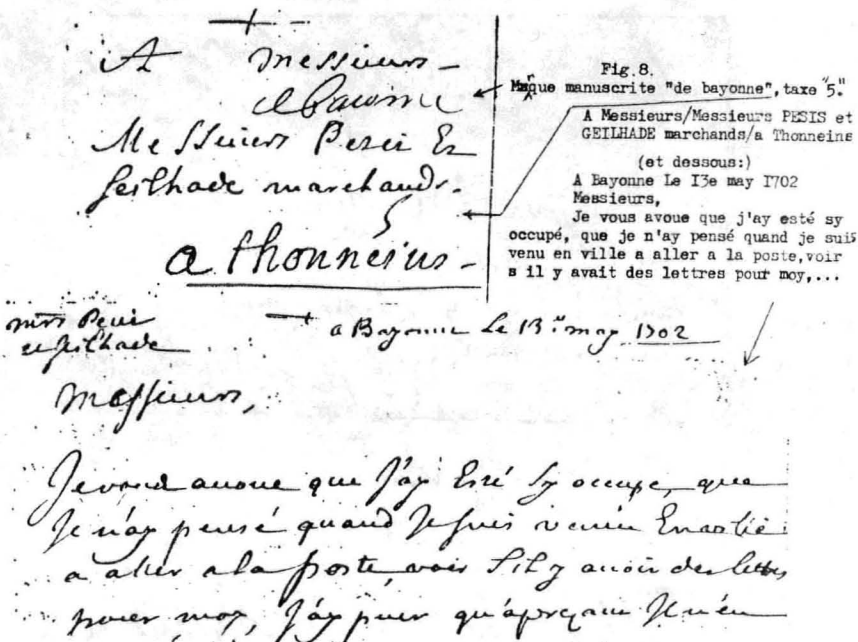 A messieurs
de bayonne
Messieurs Pesei Et
Geilhade marchands.
a Thonneins
Fig.8.
Marque manuscrite "de bayonne", taxe "5."
A Messieurs/Messieurs PESIS et
GEILHADE marchands/a Thonneins
(et dessous:)
A Bayonne Le I3e may I702
Messieurs,
Je vous avoue que j'ay esté sy
occupé, que je n'ay pensé quand je suis
venu en ville a aller a la poste,voir
s il y avait des lettres pour moy,...
mrs
et Geilhade
a Bayonne Le 13e may 1702
Messieurs,
Je vous avoue que J'ay Esté Sy occupé, que
Je n'ay pensé quand Je suis venu
a aller a la poste, voir S'il y avoir des lettres
pour moy, J'ay